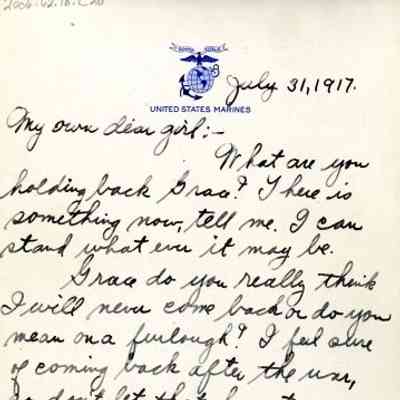 July 31, 1917.
UNITED STATES MARINES
My own dear girl:-
What are you
holding back Grace? There is
something now, tell me. I can
stand what ever it may be.
Grace do you really think
I will never come back or do you
mean on a furlough? I feel sure
of coming back after the war,
so don't let that